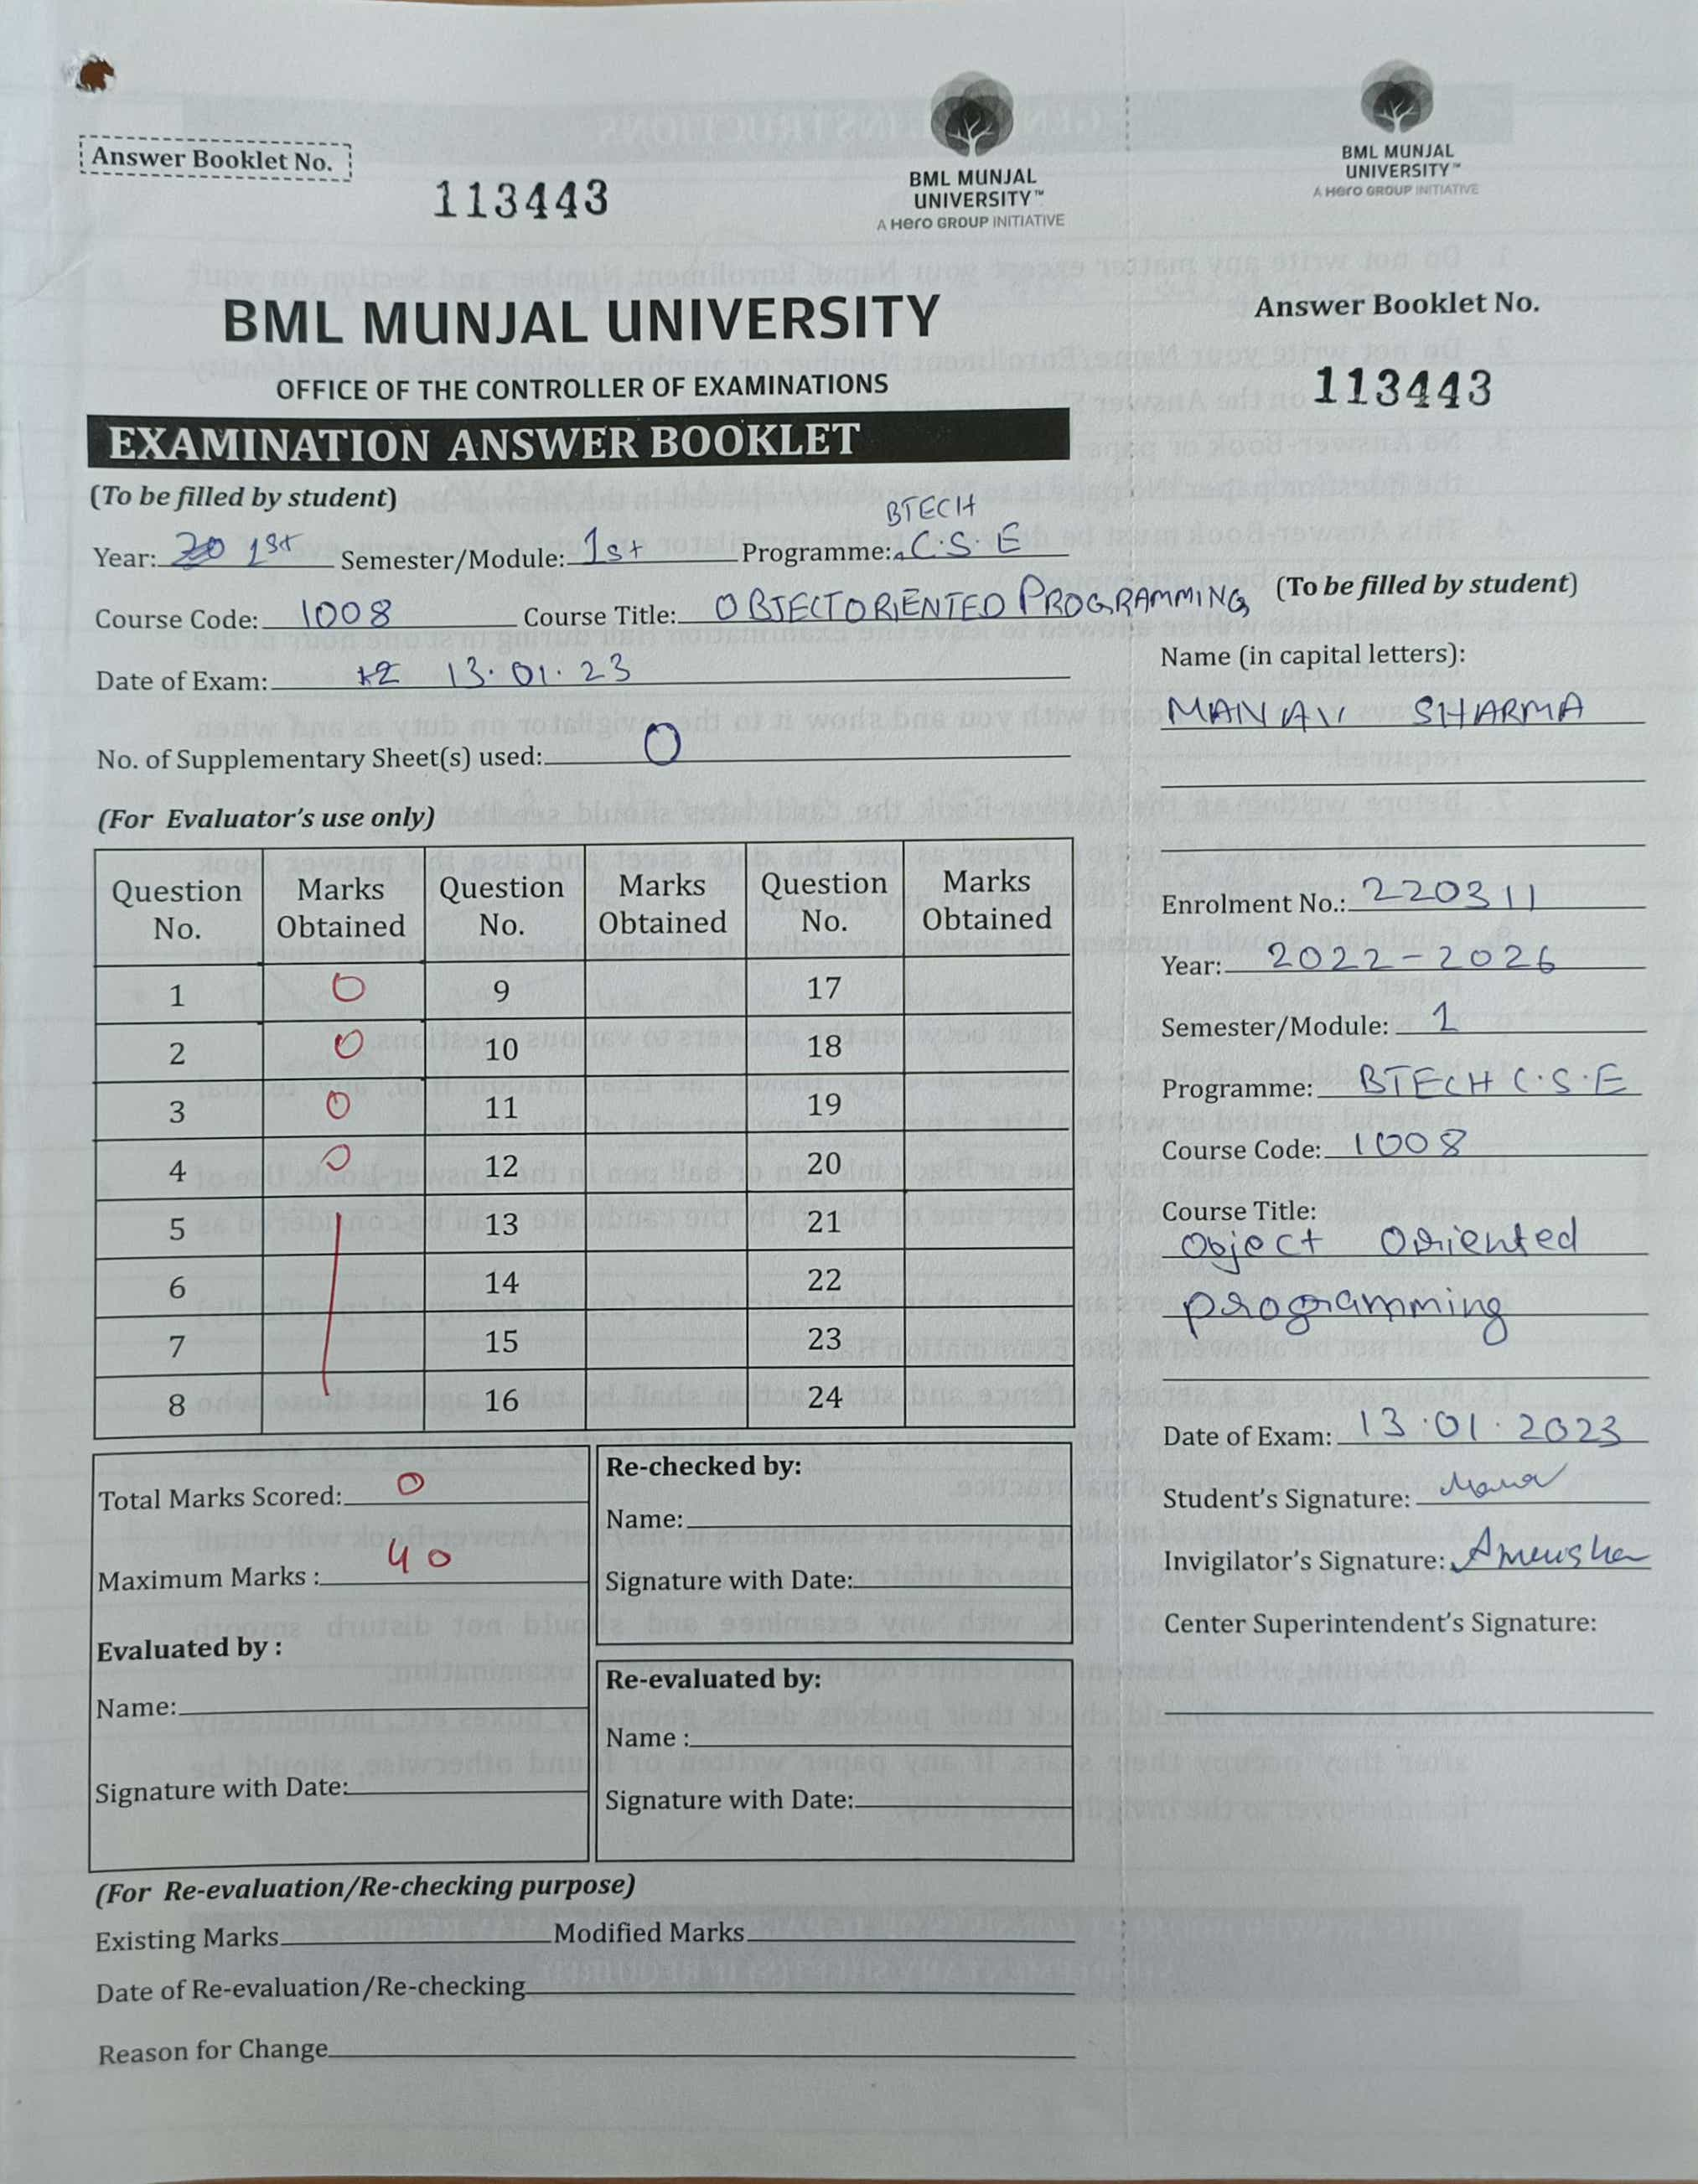 Answer Booklet No.
113443
BML MUNJAL
UNIVERSITY™
A Hero GROUP INITIATIVE
BML MUNJAL UNIVERSITY
OFFICE OF THE CONTROLLER OF EXAMINATIONS
EXAMINATION ANSWER BOOKLET
(To be filled by student)
BTECH
Year: 1st Semester/Module: 1st Programme: C.S.E
Course Code: 1008 Course Title: OBJECTORIENTED PROGRAMMING
Date of Exam: 13.01.23
No. of Supplementary Sheet(s) used: 0
(For Evaluator's use only)
Question No. Marks Obtained Question No. Marks Obtained Question No. Marks Obtained
1 0 9 17
2 0 10 18
3 0 11 19
4 0 12 20
5 13 21
6 14 22
7 15 23
8 16 24
Total Marks Scored: 0
Maximum Marks : 40
Evaluated by :
Name:
Signature with Date:
Re-checked by:
Name:
Signature with Date:
Re-evaluated by:
Name :
Signature with Date:
(For Re-evaluation/Re-checking purpose)
Existing Marks Modified Marks
Date of Re-evaluation/Re-checking
Reason for Change
BML MUNJAL
UNIVERSITY™
A Hero GROUP INITIATIVE
Answer Booklet No.
113443
(To be filled by student)
Name (in capital letters):
MANAV SHARMA
Enrolment No.: 220311
Year: 2022-2026
Semester/Module: 1
Programme: BTECH C.S.E
Course Code: 1008
Course Title:
Object Oriented
programming
Date of Exam: 13.01.2023
Student's Signature:
Invigilator's Signature:
Center Superintendent's Signature: